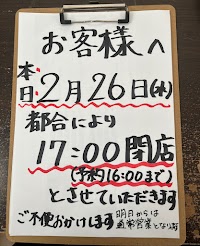 お客様へ
本日2月26日(水)
都合により
17:00閉店
(予約16:00まで)
とさせていただきます
ご不便おかけします
明日からは
通常営業となります